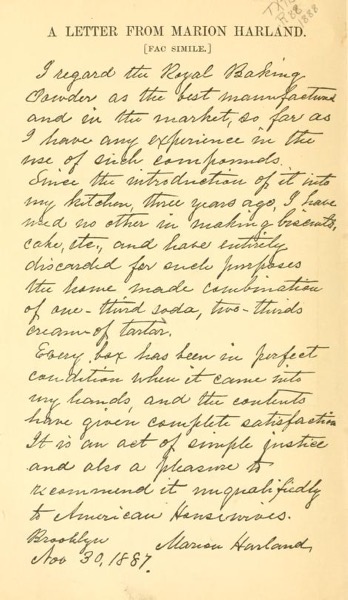 A LETTER FROM MARION HARLAND.
[FAC SIMILE.]
I regard the Royal Baking
Powder as the best manufactured
and in the market, so far as
I have any experience in the
use of such compounds.
Since the introduction of it into
my kitchen, three years ago, I have
used no other in making biscuits,
cake, etc., and have entirely
discarded for such purposes
the home made combination
of one-third soda, two-thirds
cream-of tartar.
Every box has been in perfect
condition when it came into
my hands, and the contents
have given complete satisfaction.
It is an act of simple justice
and also a pleasure to
recommend it unqualifiedly
to American Housewives.
Brooklyn Marion Harland,
Nov 30, 1887.
1888